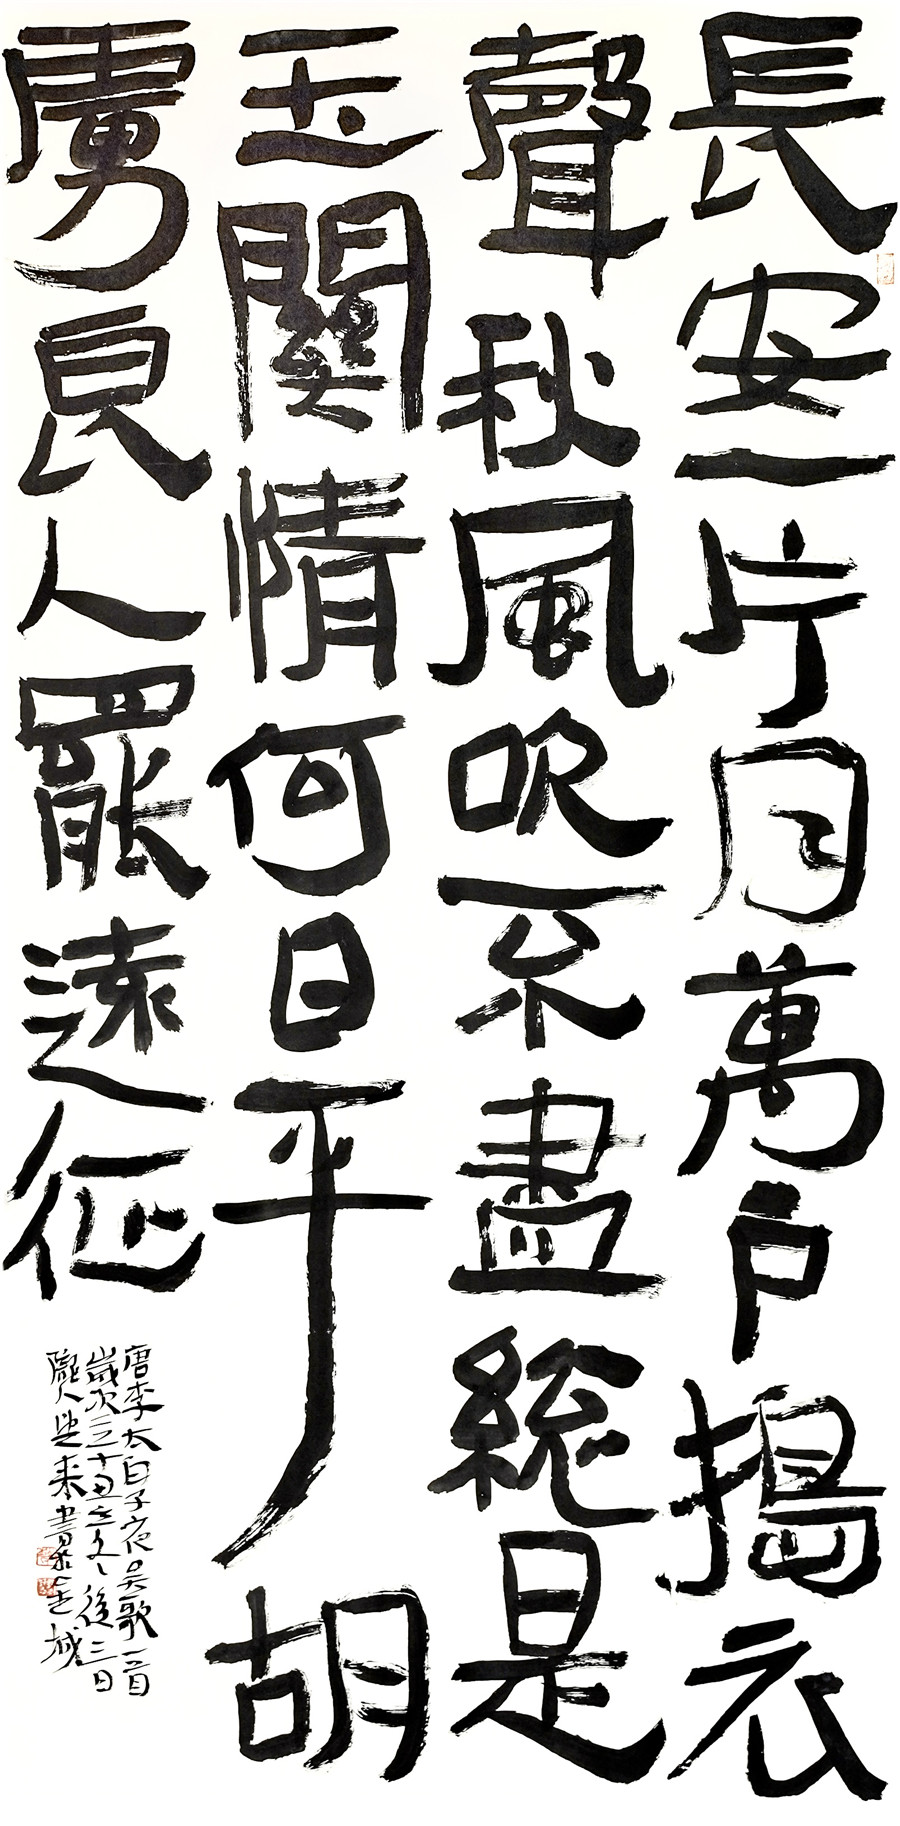 長安一片月萬户搗衣
聲秋風吹不盡總是
玉關情何日平胡
虜良人罷遠征
唐李太白子夜吴歌一首
歲次三十五立冬後三日
隴人 來書於 城